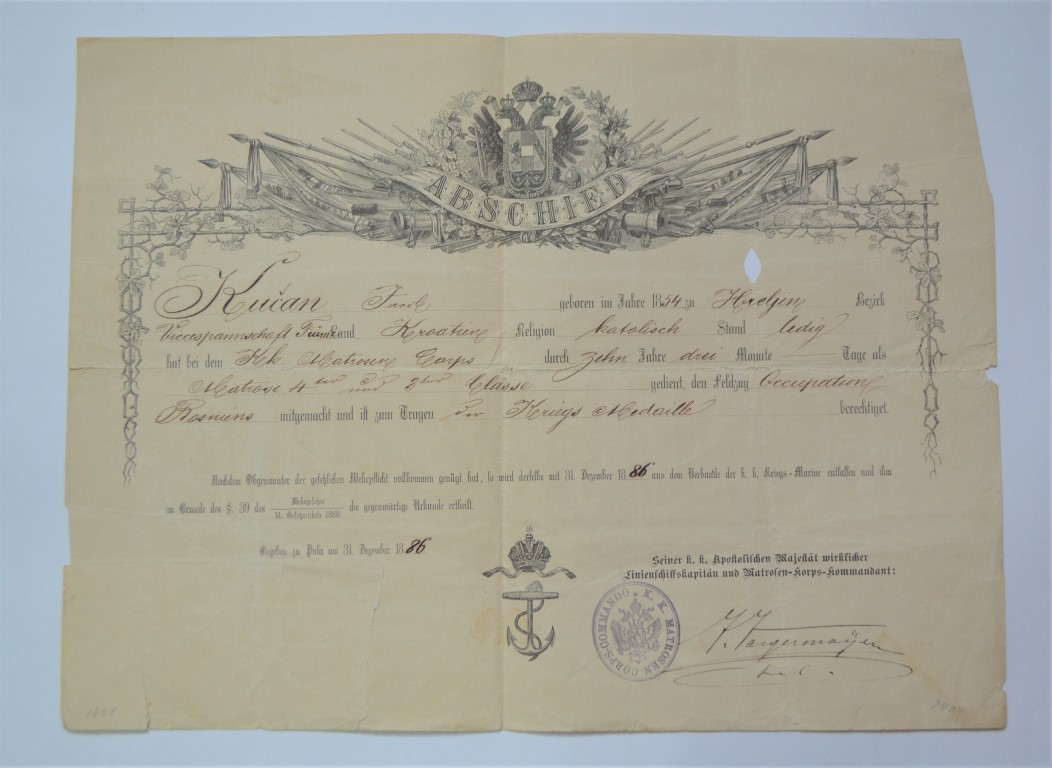 ABSCHIED
Kučan Jacob geboren im Jahre 1854 zu Hreljin Bezirk
Vicegespannschaft Fiume Land Kroatien Religion katolisch Stand ledig
hat bei dem K.k. Matrosen Corps durch zehn Jahre drei Monate Tage als
Matrose 4ter und 3ter Classe gedient, den Feldzug Occupation
Bosniens mitgemacht und ist zum Tragen der Kriegs Medaille berechtiget.
Nachdem Obgenannter der gesetzlichen Wehrpflicht vollkommen genügt hat, so wird derselbe mit 31. Dezember 1886 aus dem Verbande der k. k. Kriegs-Marine entlassen und ihm
im Grunde des §. 39 des Wehrgesetzes
XL. Gesetzartikels 1868 die gegenwärtige Urkunde ertheilt.
Gegeben zu Pola am 31. Dezember 1886
Seiner k. k. Apostolischen Majestät wirklicher
Linienschiffskapitän und Matrosen-Korps-Kommandant:
K. K. MATROSEN-CORPS-COMMANDO